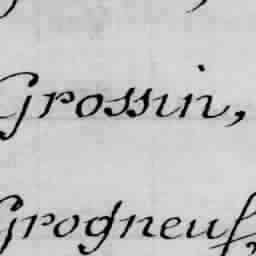 Grossin,
Grogneuf,